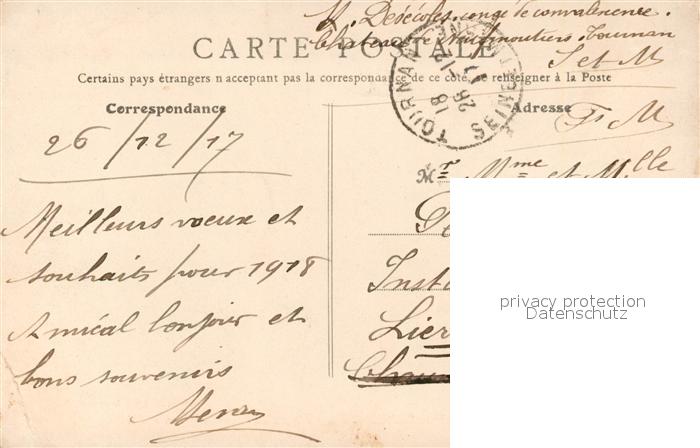 H. Desécoles. congé de convalescence.
Chateau de Neufmoutiers. Tournan
CARTE POSTALE
S et M
Certains pays étrangers n acceptant pas la correspondance de ce côté, se renseigner à la Poste
TOURNAN
18
26-12
17
SEINE
Correspondance
Adresse
26/12/17
F. M
Mr Mme et Mlle
Meilleurs voeux et
souhaits pour 1918
Amical bonjour et
bons souvenirs
Insta
Lier
privacy protection
Datenschutz